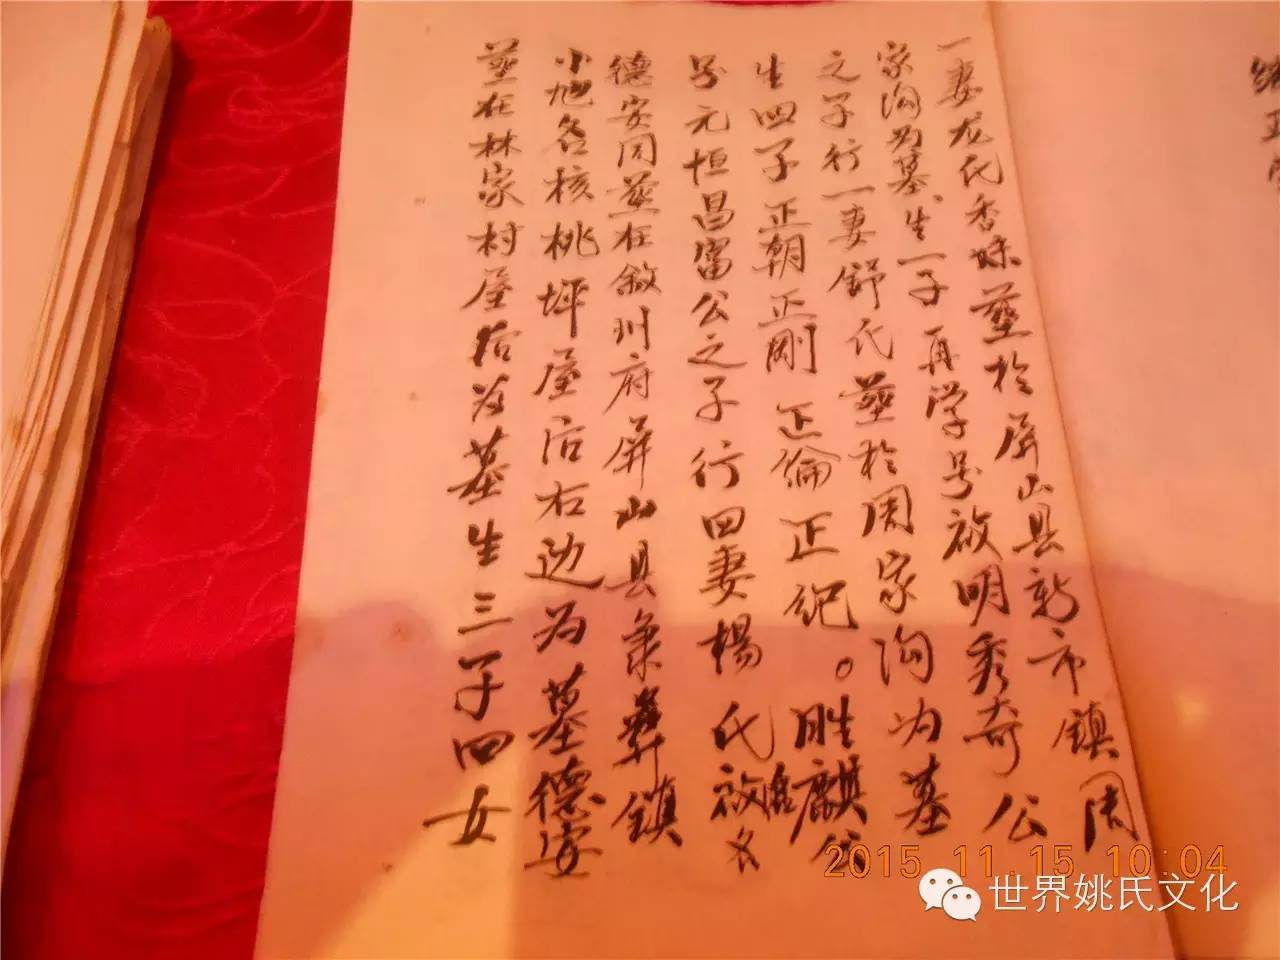 一妻龙氏香妹墓於屏山县新市镇周
家沟为墓生一子再学号啟明秀奇公
之子行一妻舒氏墓於周家沟为墓
生四子正朝正刚正倫正纪。胜麒公
号元恒昌富公之子行四妻楊氏啟名
德安同墓在敘州府屏山县彝鎮
小地名核桃坪屋后右边为墓德安
墓在林家村屋后为墓生三子四女
2015.11.15 10:04
世界姚氏文化